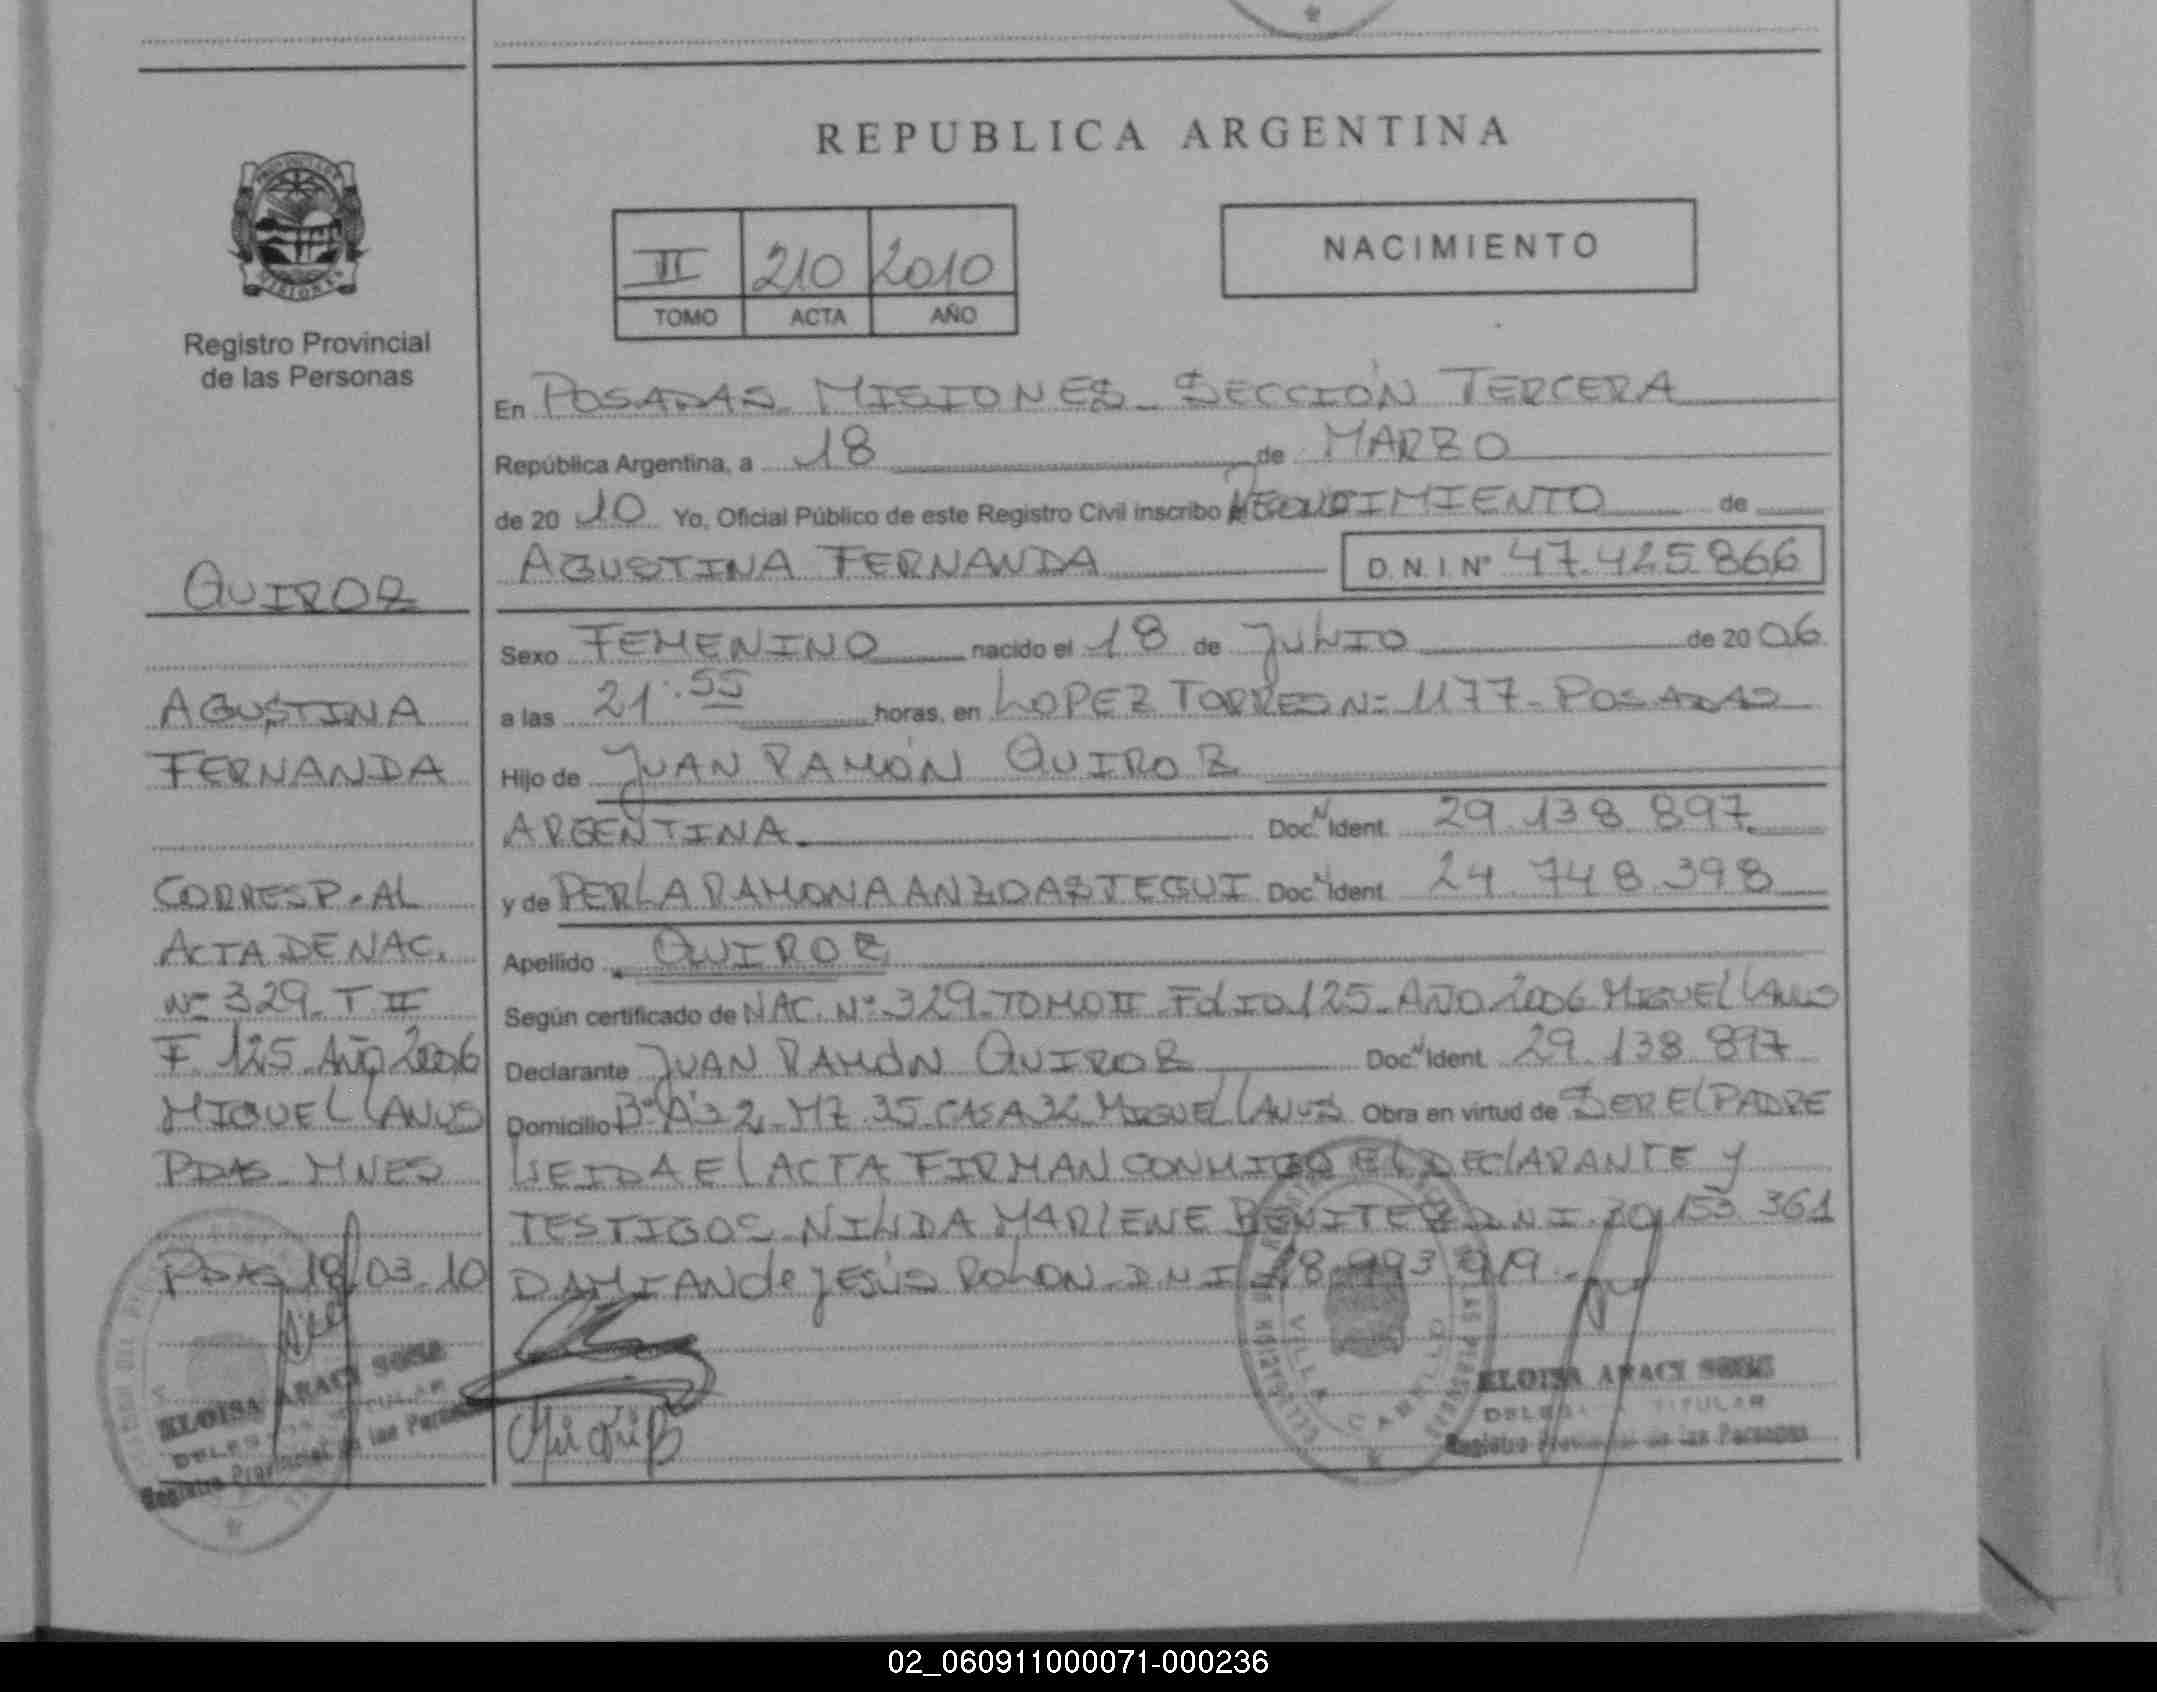 REPUBLICA ARGENTINA
II 210 2010
TOMO ACTA AÑO
NACIMIENTO
Registro Provincial
de las Personas
QUIROZ
AGUSTINA
FERNANDA
CORRESP. AL
ACTA DE NAC.
Nº 329 T II
F. 125 AÑO 2006
MIGUEL LANUS
PDAS MNES
PDAS 18/03 10
ELOISA ARACI
DELEGADA TITULAR
Registro Provincial de las Personas
En POSADAS MISIONES SECCIÓN TERCERA
República Argentina, a 18 de MARZO
de 20 10 Yo, Oficial Público de este Registro Civil inscribo de
AGUSTINA FERNANDA D.N.I. Nº 47.425.866
Sexo FEMENINO nacido el 18 de JULIO de 20 06
a las 21:55 horas, en LOPEZ TORRES Nº 1177 - POSADAS
Hijo de JUAN RAMÓN QUIROZ
ARGENTINA Doc. Ident. 29.138.897
y de PERLA RAMONA ANZOASTEGUI Doc. Ident. 24.748.398
Apellido QUIROZ
Según certificado de NAC. Nº 329 TOMO II FOLIO 125 AÑO 2006 MIGUEL LANUS
Declarante JUAN RAMÓN QUIROZ Doc. Ident. 29.138.897
Domicilio Bº A 3 2 MZ 35 CASA 32 MIGUEL LANUS Obra en virtud de SER EL PADRE
LEIDA EL ACTA FIRMAN CONMIGO EL DECLARANTE Y
TESTIGOS NILDA MARLENE BENITEZ D.N.I. 30.153.361
DAMIAN de JESÚS ROLON D.N.I.
VILLA CABELLO
ELOISA ARACI
DELEGADA TITULAR
Registro Provincial de las Personas
02_060911000071-000236